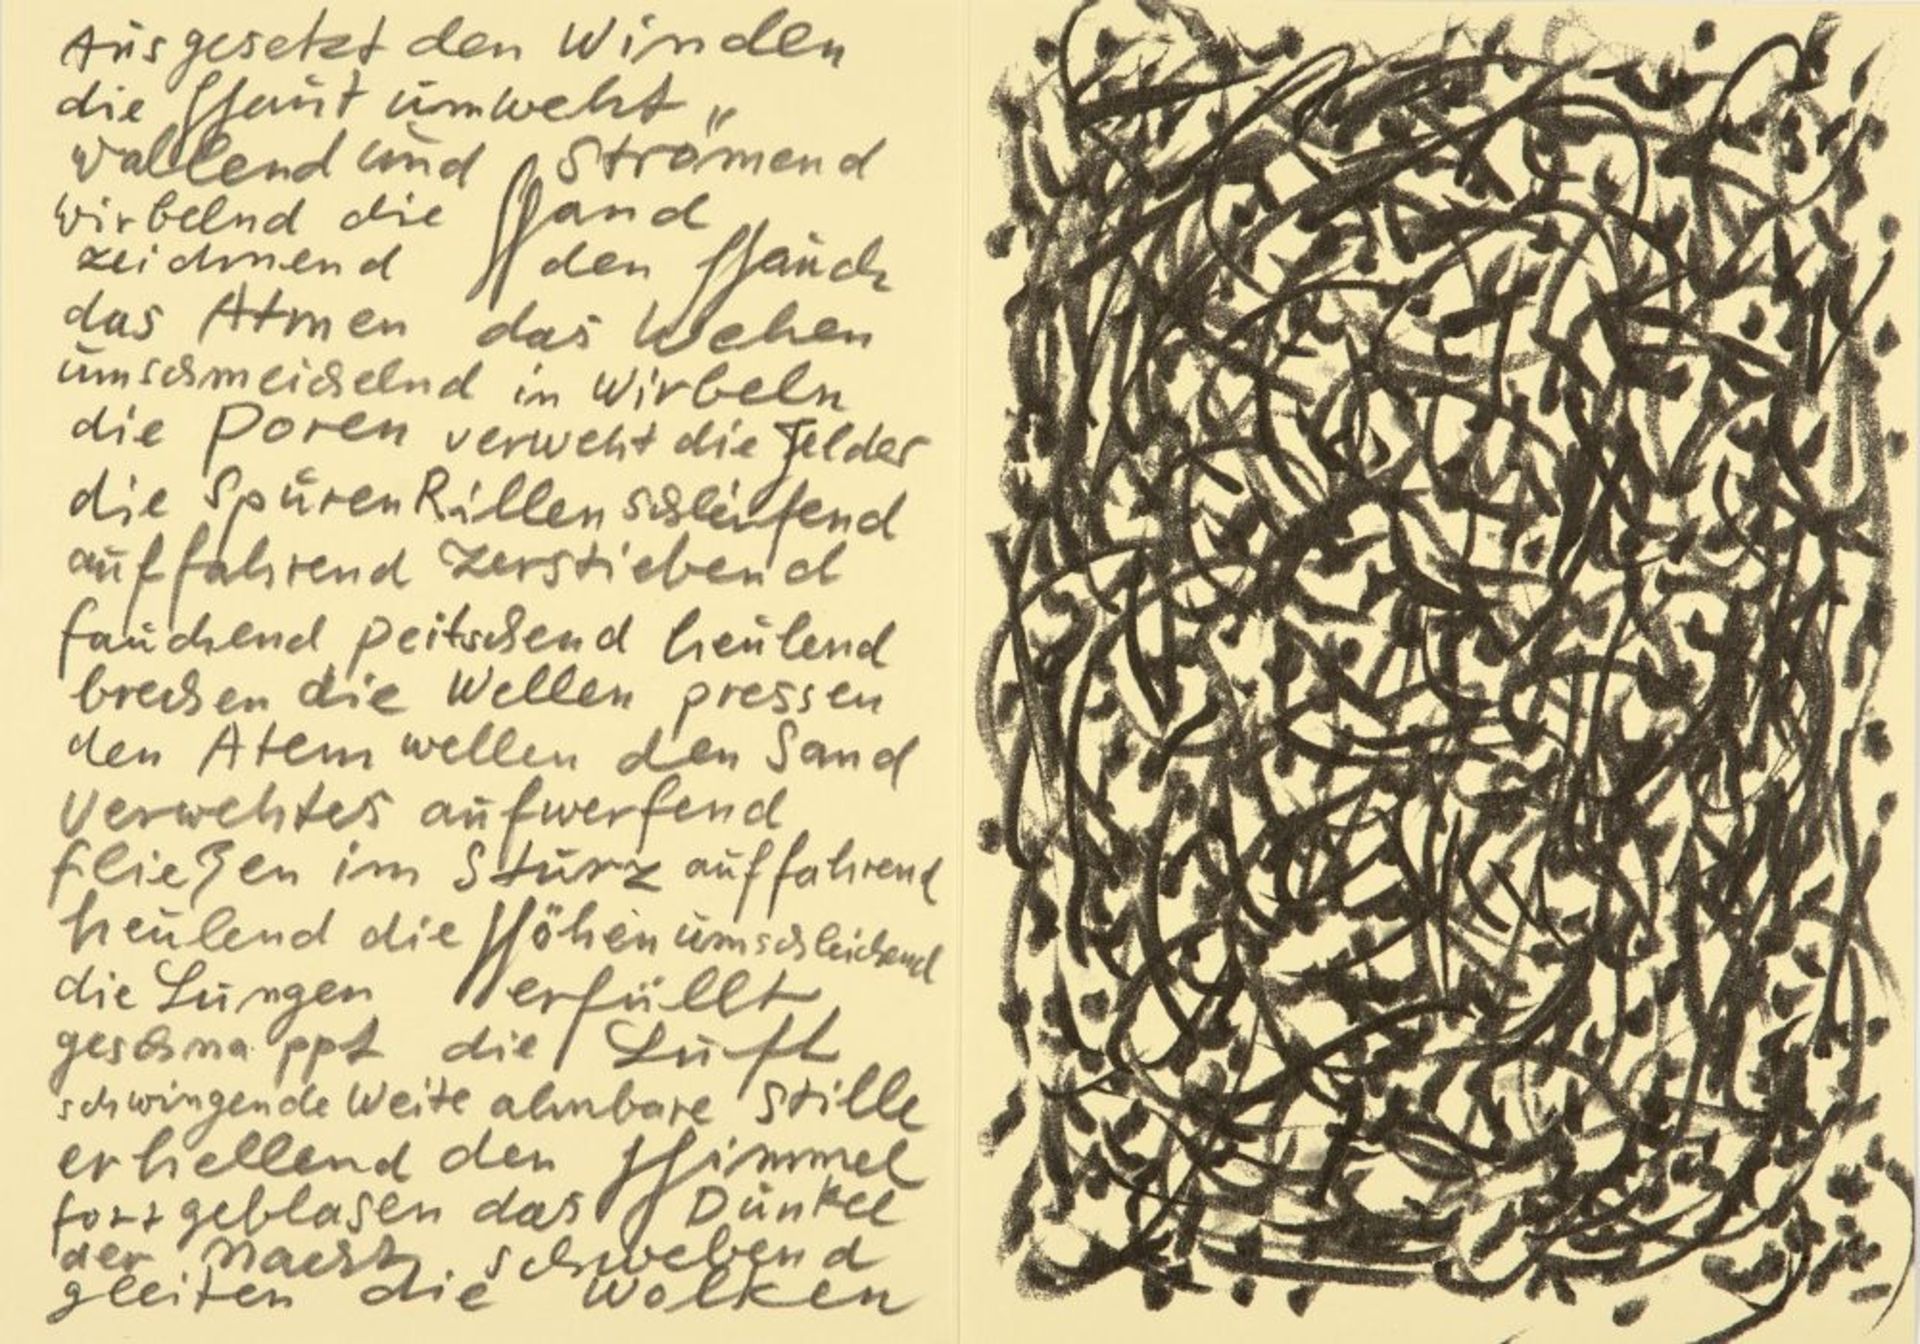 Ausgesetzt den Winden
die Haut umweht
wallend und strömend
wirbelnd die Hand
zeichnend den Hauch
das Atmen das Wehen
umschmeichelnd in Wirbeln
die Poren verweht die Felder
die Spuren Rillen schleifend
auffahrend zerstiebend
fauchend peitschend heulend
brechen die Wellen pressen
den Atem wellen den Sand
Verwehtes aufwerfend
fließen im Sturz auffahrend
heulend die Höhen umschleichend
die Lungen erfüllt
geschnappt die Luft
schwingende Weite ahnbare Stille
erhellend den Himmel
fortgeblasen das Dunkel
der Nacht schwebend
gleiten die Wolken